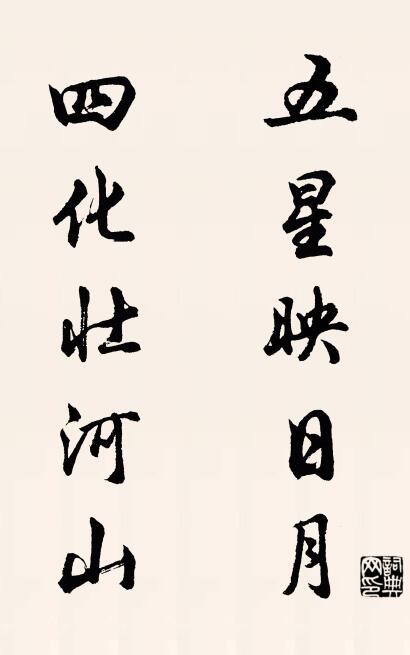 五星映日月
四化壮河山
詞典网印